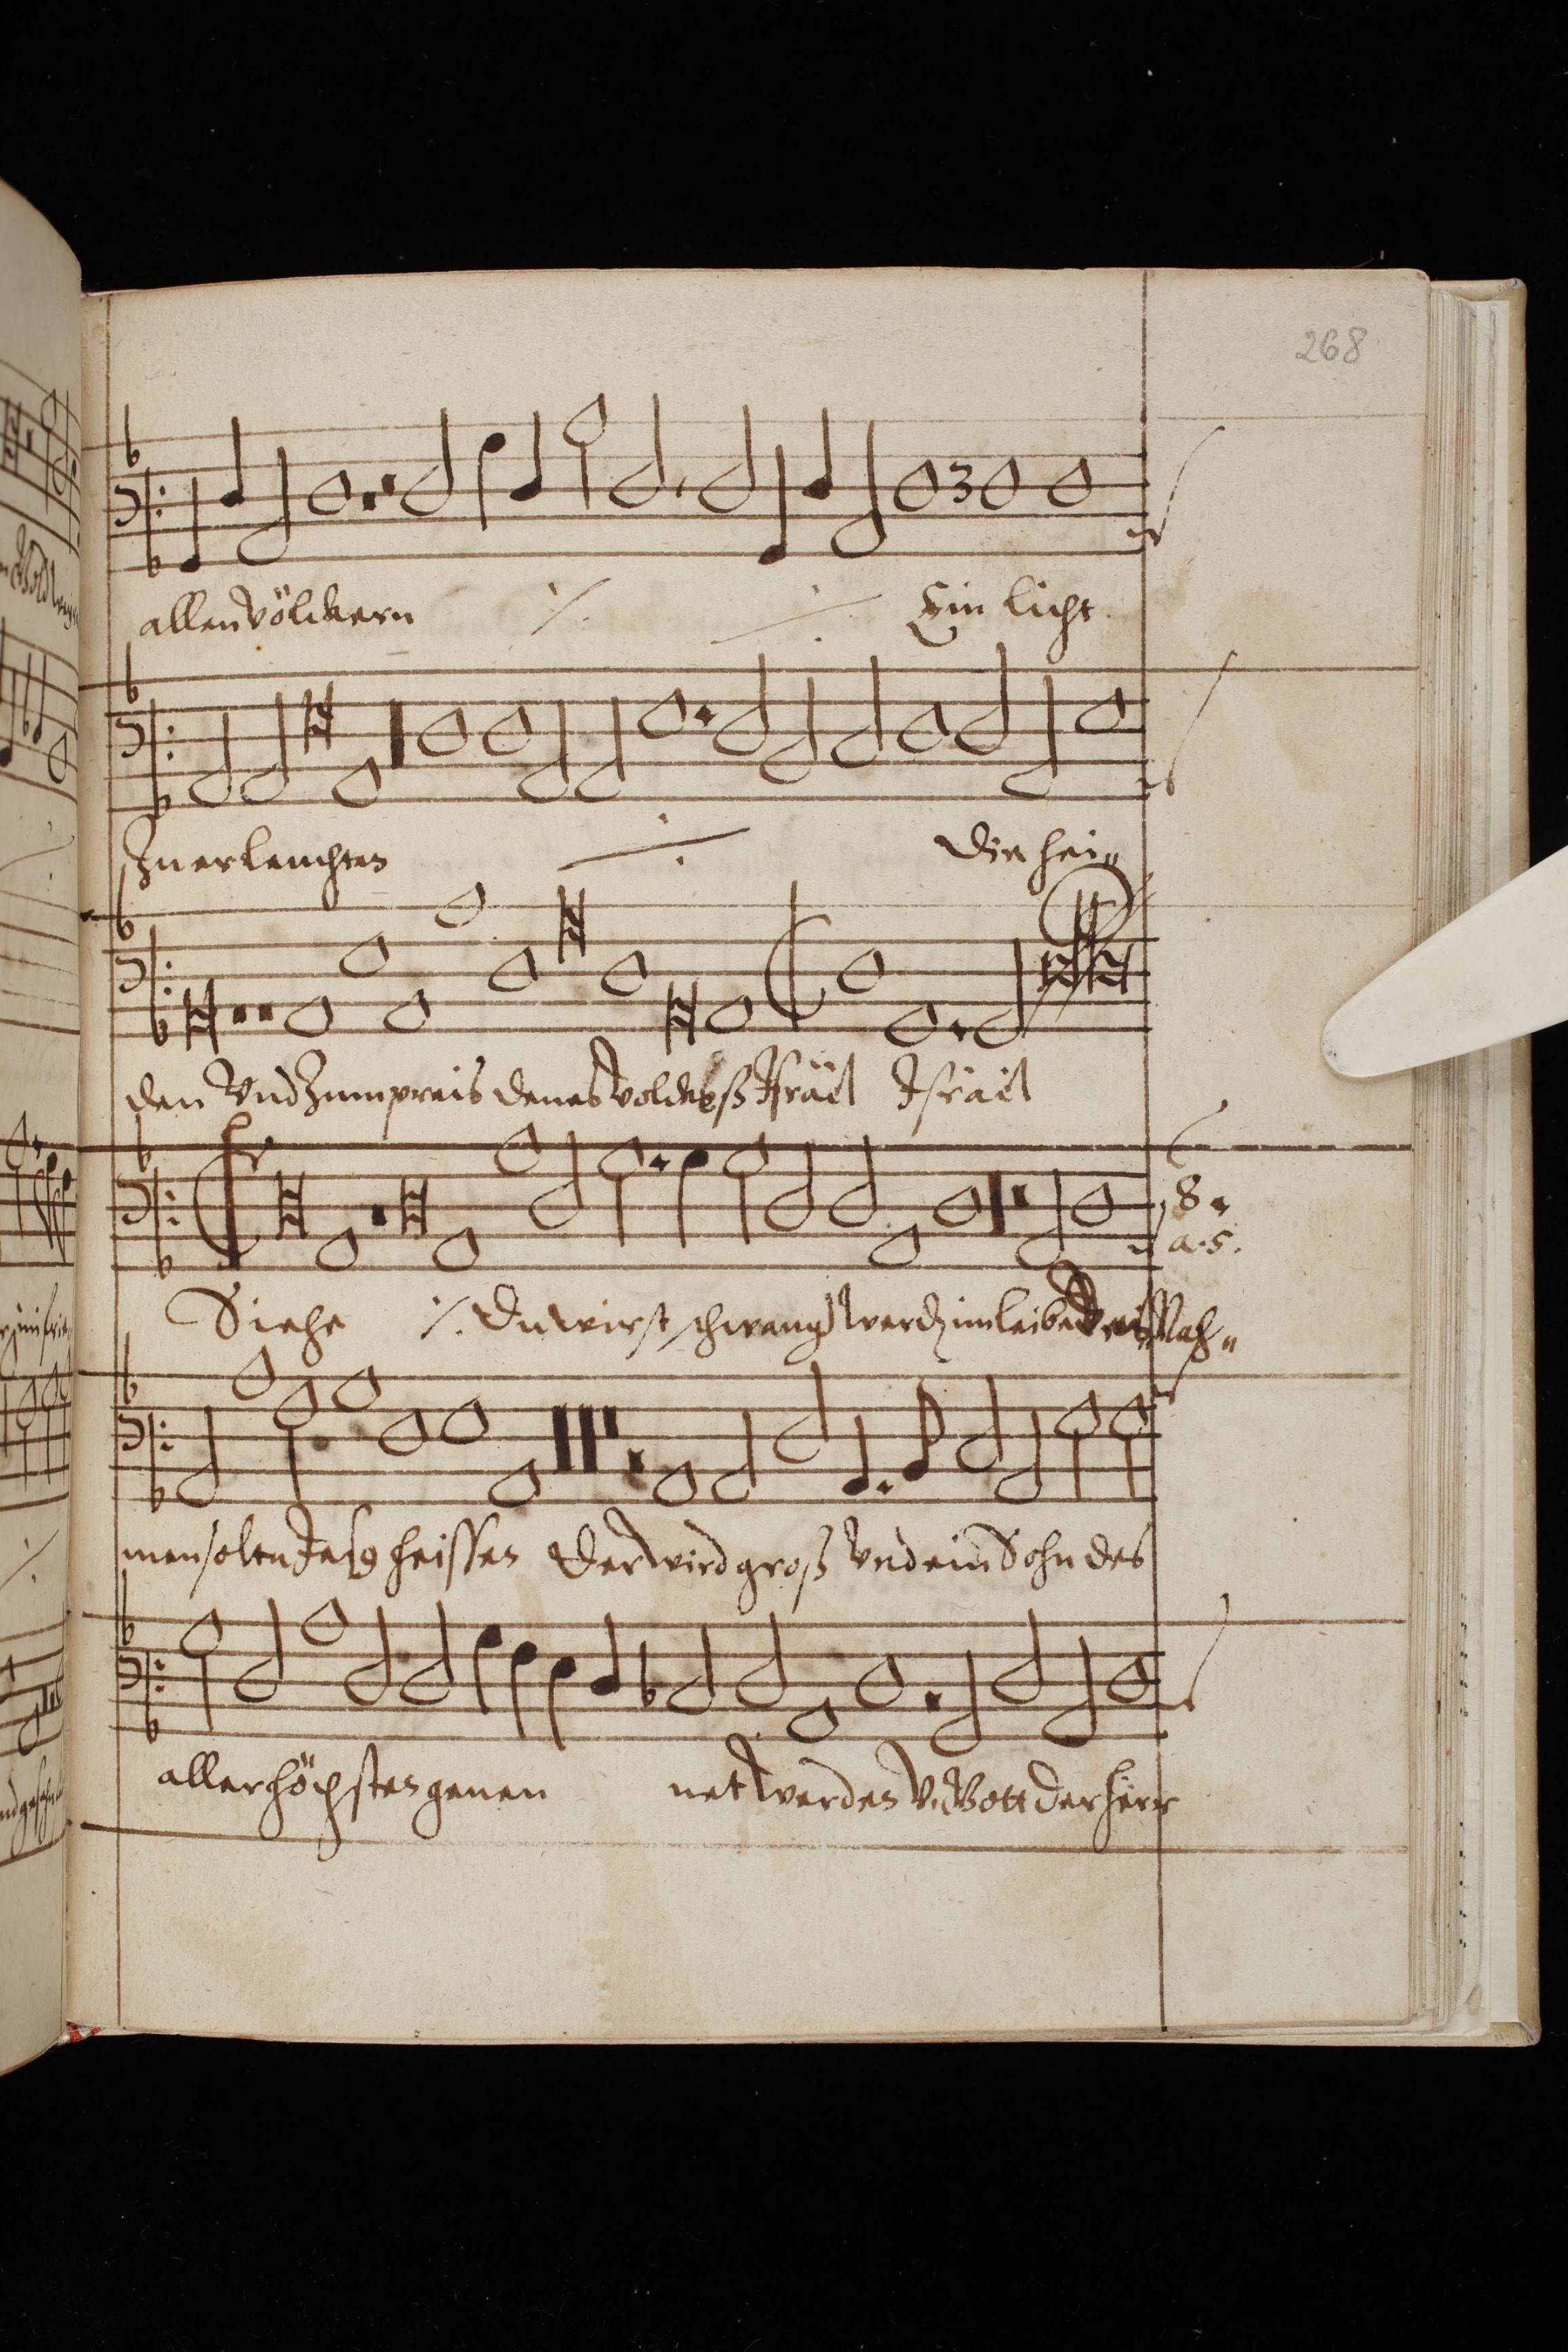 268
allen völckern ⁒ ⁒ Ein licht
Zu erleuchten ⁒ Die hei„
den Vnd Zum preis denes Volckeß Jsräel Jsräel
8.
a. 5.
Siehe ⁒ Du wirst schwang werdn im leibe Des Nah„
men soltu Jesus heissen Der wird groß Vnd ein Sohn des
aller höchsten genen net werden V. Gott der herr